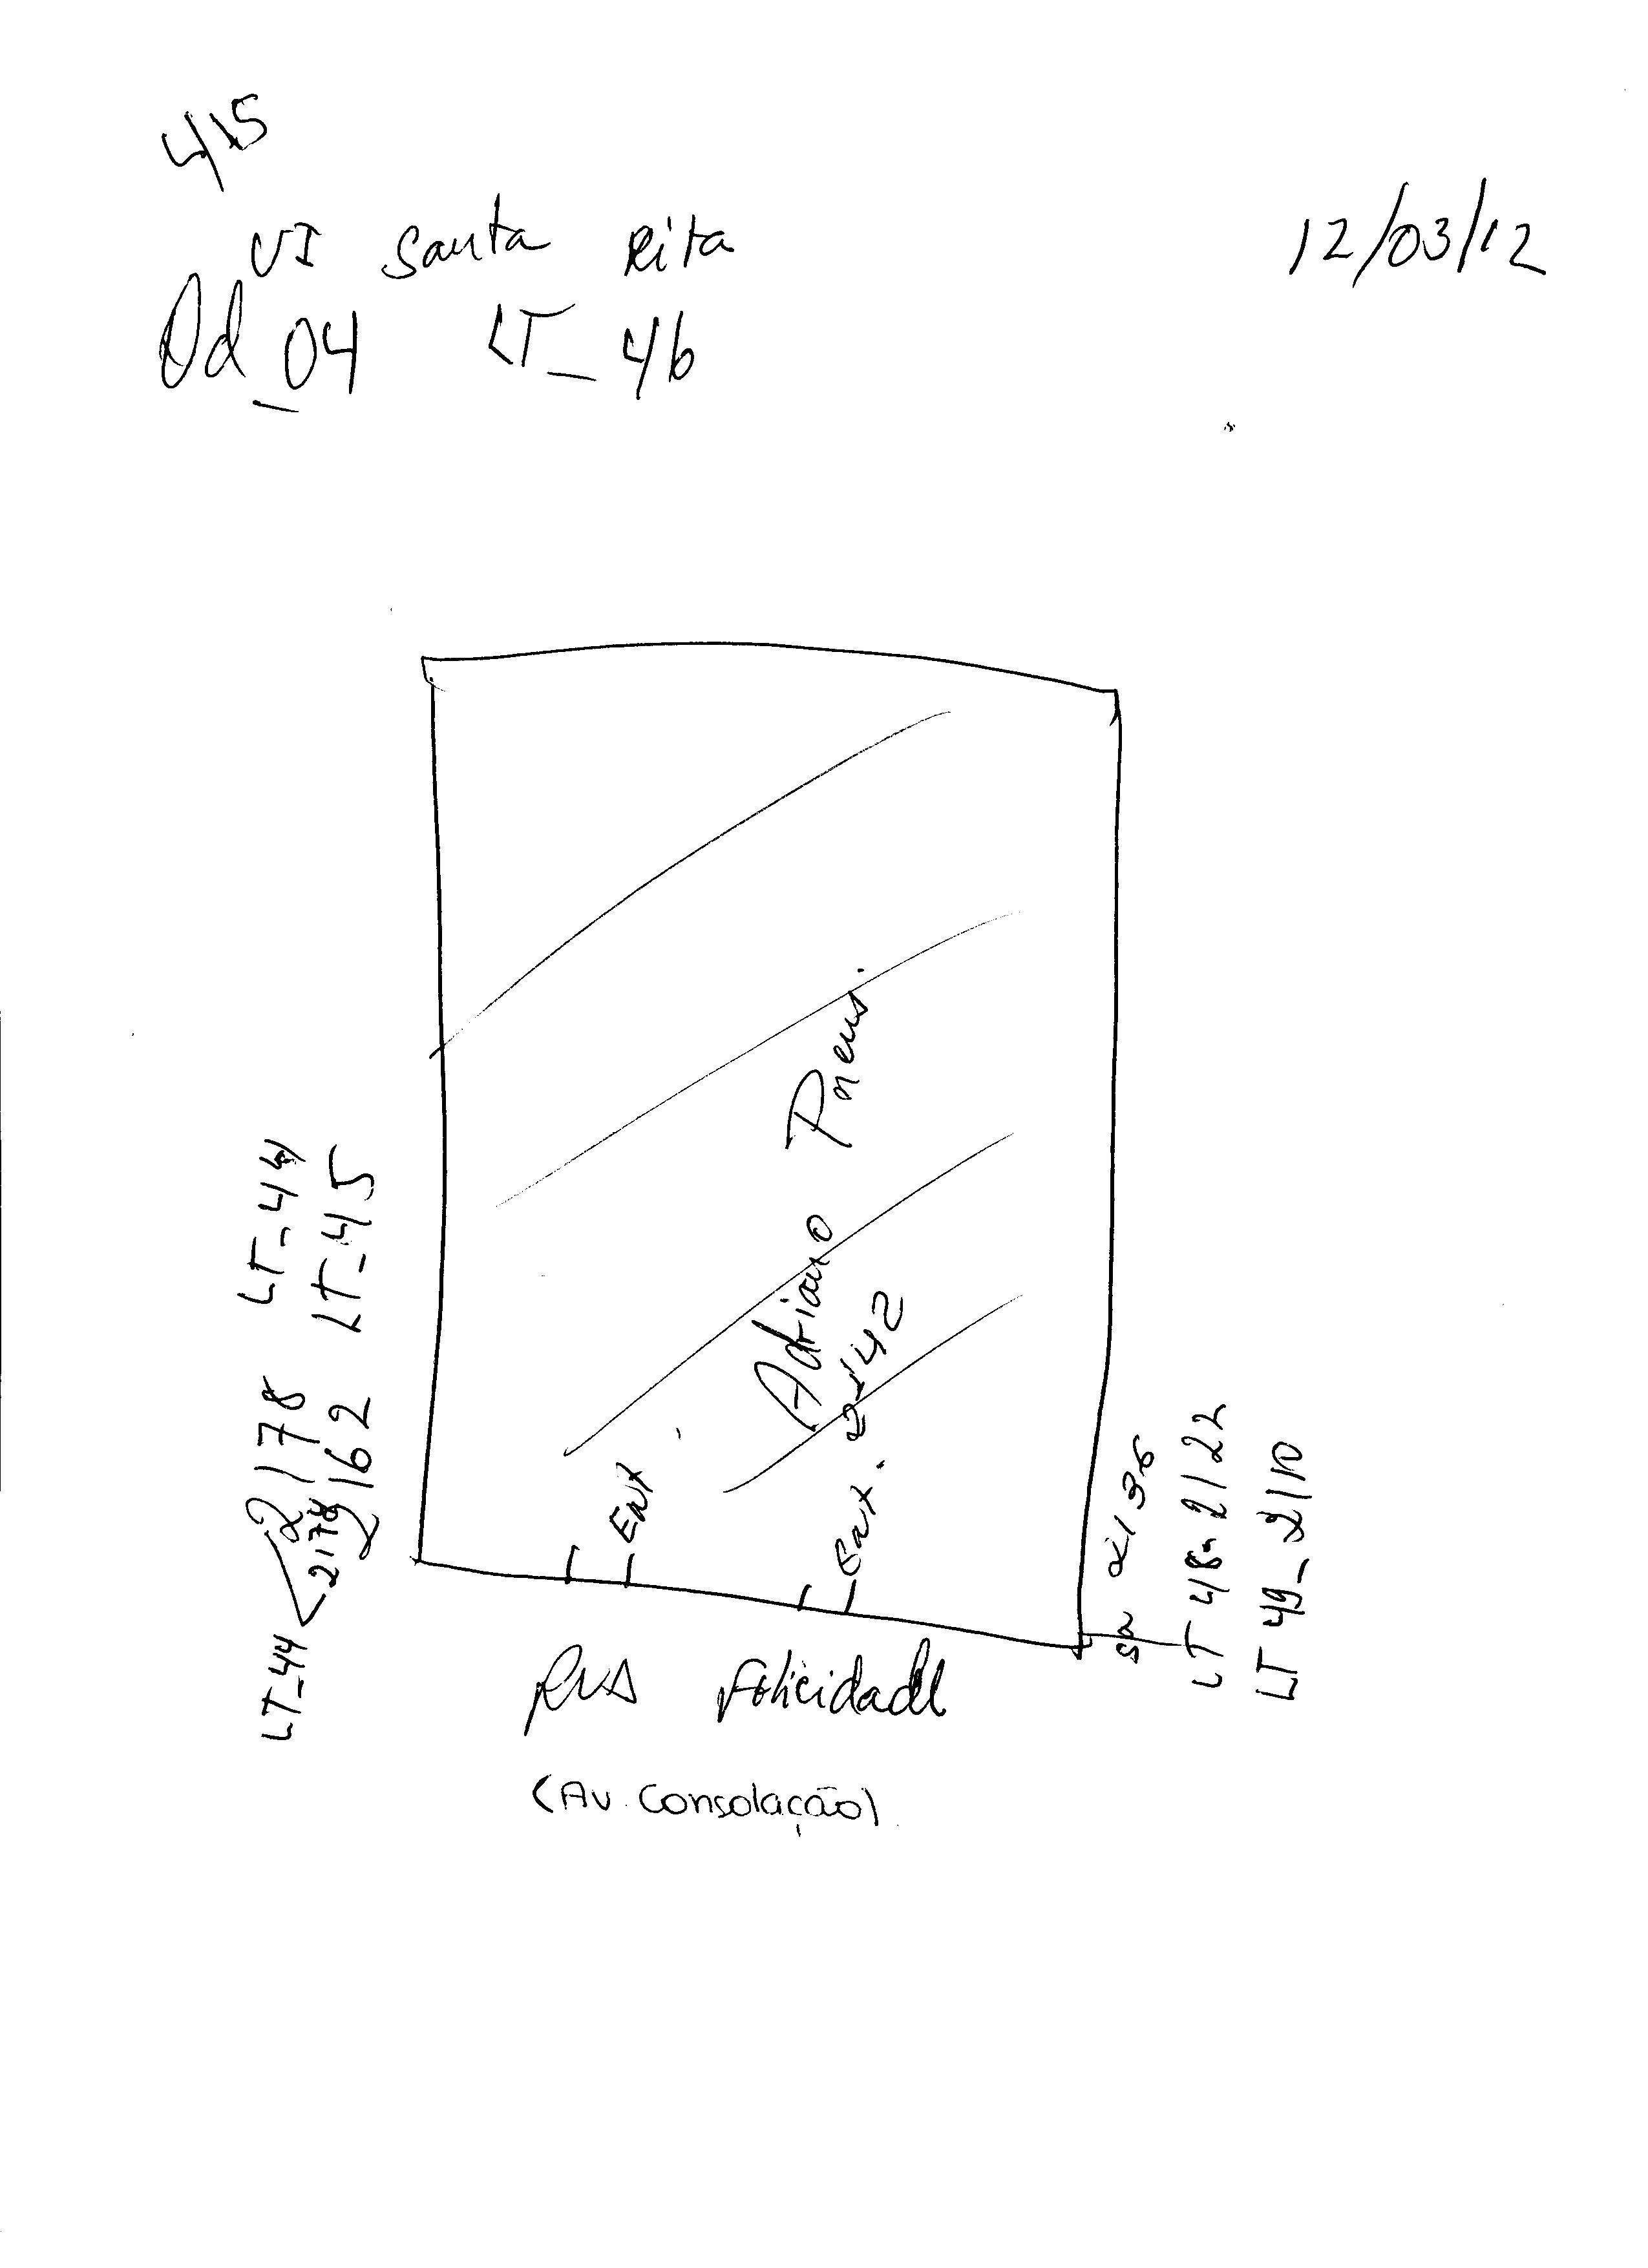 415
VI Santa Rita
12/03/12
Qd_04 LT_46
Adriano Pneus.
2142
Ent.
Ent.
2178 LT_44
2162 LT_45
LT_44 2178
2136
LT 48-2122
LT 49_2110
Rua Felicidade
(Av. Consolação)